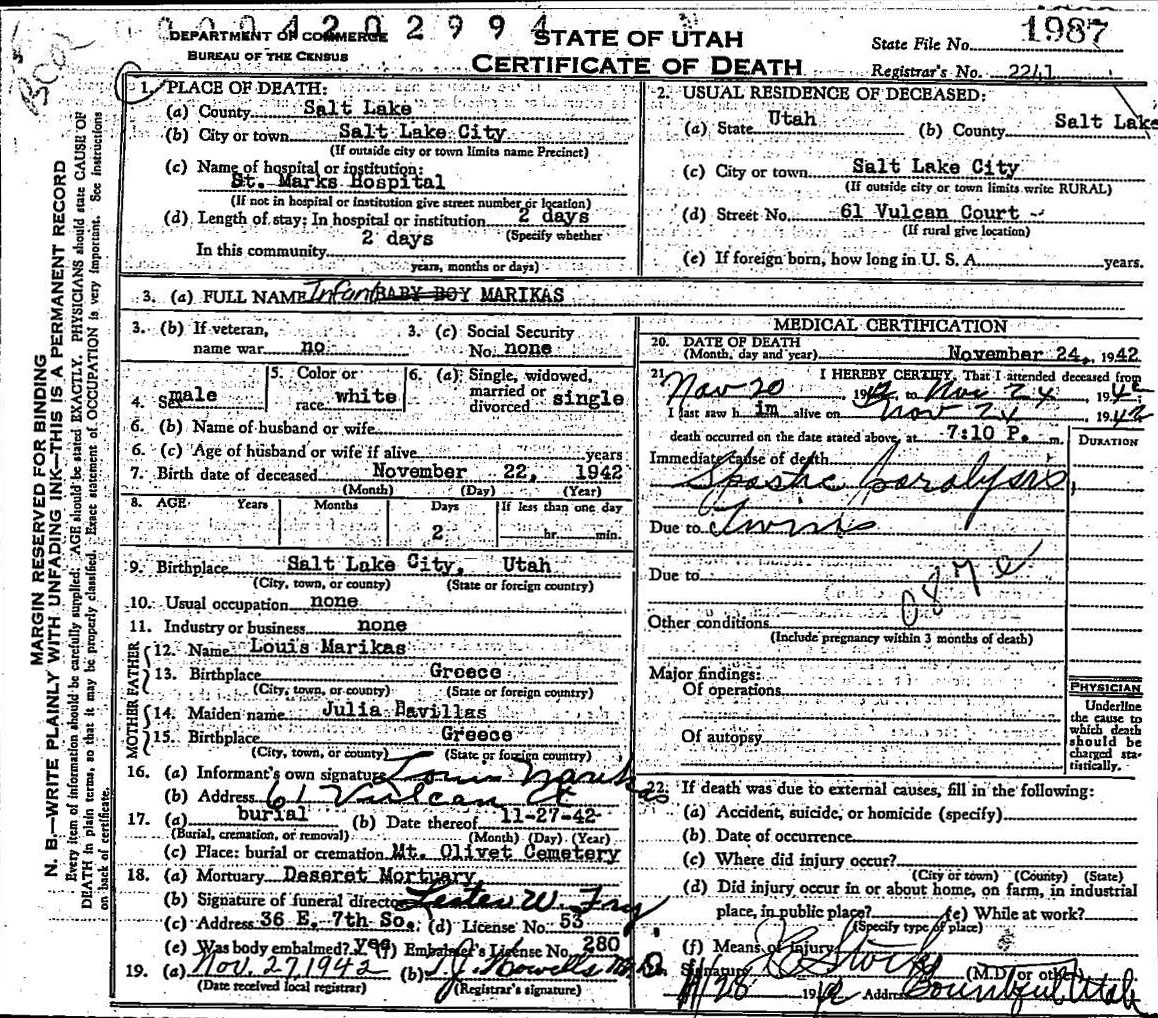 0004202994
DEPARTMENT OF COMMERCE
BUREAU OF THE CENSUS
STATE OF UTAH
CERTIFICATE OF DEATH
State File No. 1987
Registrar's No. 2241
MARGIN RESERVED FOR BINDING
N. B.—WRITE PLAINLY WITH UNFADING INK—THIS IS A PERMANENT RECORD
Every item of information should be carefully supplied. AGE should be stated EXACTLY. PHYSICIANS should state CAUSE OF
DEATH in plain terms, so that it may be properly classified. Exact statement of OCCUPATION is very important. See instructions
on back of certificate.
1. PLACE OF DEATH:
(a) County Salt Lake
(b) City or town Salt Lake City
(If outside city or town limits name Precinct)
(c) Name of hospital or institution:
St. Marks Hospital
(If not in hospital or institution give street number or location)
(d) Length of stay: In hospital or institution 2 days
(Specify whether
In this community 2 days
years, months or days)
2. USUAL RESIDENCE OF DECEASED:
(a) State Utah (b) County Salt Lake
(c) City or town Salt Lake City
(If outside city or town limits write RURAL)
(d) Street No. 61 Vulcan Court
(If rural give location)
(e) If foreign born, how long in U. S. A. years.
3. (a) FULL NAME Infant BABY BOY MARIKAS
3. (b) If veteran, name war no
3. (c) Social Security No. none
4. Sex male
5. Color or race white
6. (a) Single, widowed, married or divorced single
6. (b) Name of husband or wife
6. (c) Age of husband or wife if alive years
7. Birth date of deceased November 22, 1942
(Month) (Day) (Year)
8. AGE Years Months Days If less than one day
2 hr. min.
9. Birthplace Salt Lake City, Utah
(City, town, or county) (State or foreign country)
10. Usual occupation none
11. Industry or business none
FATHER
12. Name Louis Marikas
13. Birthplace Greece
(City, town, or county) (State or foreign country)
MOTHER
14. Maiden name Julia Pavillas
15. Birthplace Greece
(City, town, or county) (State or foreign country)
16. (a) Informant's own signature Louis Marikas
(b) Address 61 Vulcan Ct
17. (a) burial (b) Date thereof 11-27-42
(Burial, cremation, or removal) (Month) (Day) (Year)
(c) Place: burial or cremation Mt. Olivet Cemetery
18. (a) Mortuary Deseret Mortuary
(b) Signature of funeral director Lester W. Fry
(c) Address 36 E. 7th So. (d) License No. 53
(e) Was body embalmed? yes (f) Embalmer's License No. 280
19. (a) Nov. 27, 1942 (b) T. J. Howells M.D.
(Date received local registrar) (Registrar's signature)
MEDICAL CERTIFICATION
20. DATE OF DEATH
(Month, day and year) November 24, 1942
21. I HEREBY CERTIFY, That I attended deceased from
Nov 20 1942 to Nov 24, 1942;
I last saw him alive on Nov 24 1942
death occurred on the date stated above, at 7:10 P. m.
DURATION
Immediate cause of death
Spastic paralysis,
Due to Twins
Due to
087e
Other conditions
(Include pregnancy within 3 months of death)
Major findings:
Of operations
Of autopsy
PHYSICIAN
Underline
the cause to
which death
should be
charged sta-
tistically.
22. If death was due to external causes, fill in the following:
(a) Accident, suicide, or homicide (specify)
(b) Date of occurrence
(c) Where did injury occur?
(City or town) (County) (State)
(d) Did injury occur in or about home, on farm, in industrial
place, in public place? (e) While at work?
(Specify type of place)
(f) Means of injury
Signature (M.D. or other)
11/28 1942 Address Bountiful Utah